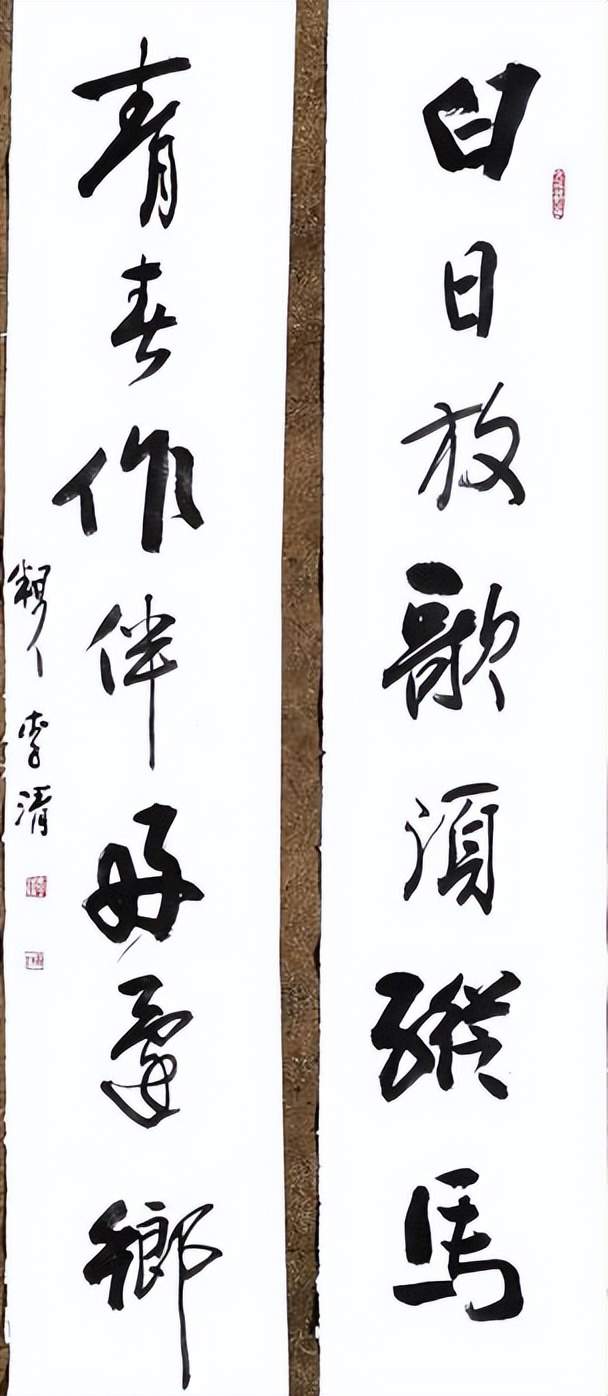 白日放歌須縱馬
青春作伴好還鄉
李清